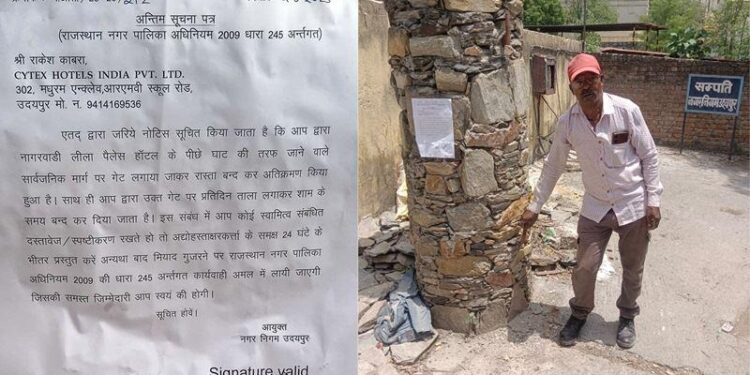 अन्तिम सूचना पत्र
(राजस्थान नगर पालिका अधिनियम 2009 धारा 245 अर्न्तगत)
श्री राकेश काबरा,
CYTEX HOTELS INDIA PVT. LTD.
302, मधुरम एन्क्लेव,आरएमवी स्कूल रोड,
उदयपुर मो. न. 9414169536
एतद् द्वारा जरिये नोटिस सूचित किया जाता है कि आप द्वारा
नागरवाडी लीला पैलेस हॉटल के पीछे घाट की तरफ जाने वाले
सार्वजनिक मार्ग पर गेट लगाया जाकर रास्ता बन्द कर अतिक्रमण किया
हुआ है। साथ ही आप द्वारा उक्त गेट पर प्रतिदिन ताला लगाकर शाम के
समय बन्द कर दिया जाता है। इस संबंध में आप कोई स्वामित्व संबंधित
दस्तावेज/स्पष्टीकरण रखते हो तो अद्योहस्ताक्षरकर्त्ता के समक्ष 24 घंटे के
भीतर प्रस्तुत करें अन्यथा बाद मियाद गुजरने पर राजस्थान नगर पालिका
अधिनियम 2009 की धारा 245 अर्न्तगत कार्यवाही अमल में लायी जाएगी
जिसकी समस्त जिम्मेदारी आप स्वयं की होगी।
सूचित होवें।
आयुक्त
नगर निगम उदयपुर
Signature valid
सम्पति
नगर निगम,उदयपुर